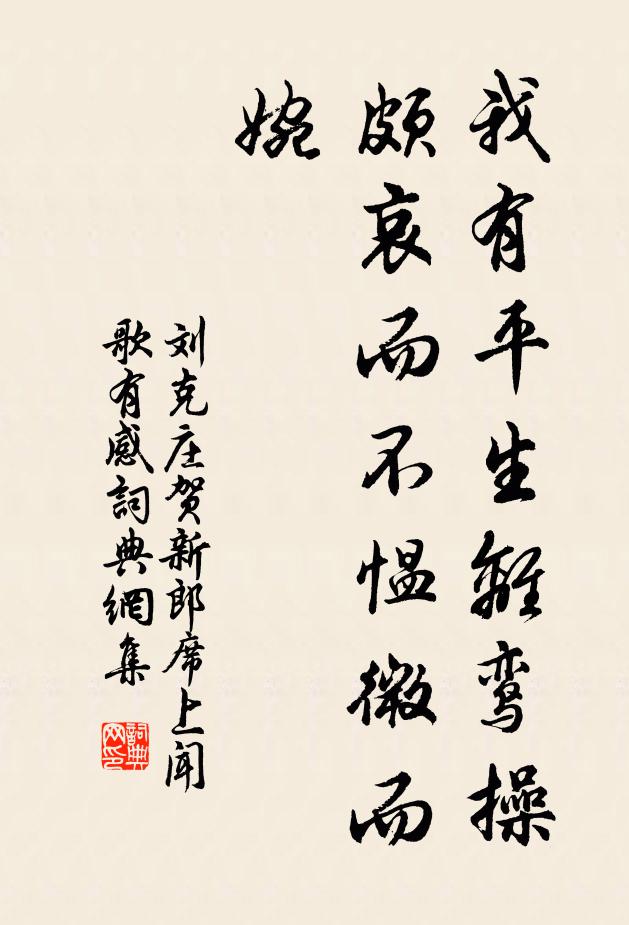 我有平生離鸾操
颇哀而不愠微而
婉
刘克庄贺新郎席上闻
歌有感詞典網集
詞典
网印